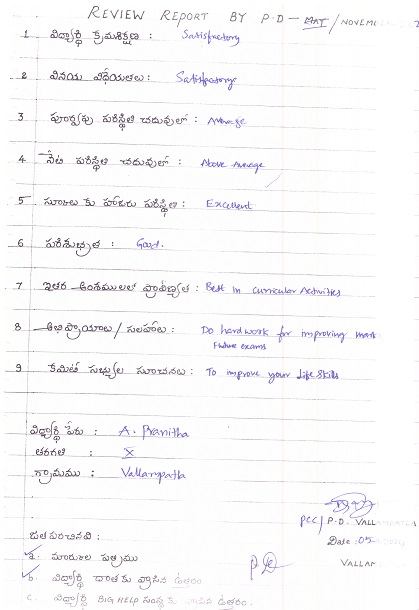 REVIEW REPORT BY P.D - MAY / NOVEM
1 విద్యార్థి క్రమశిక్షణ : Satisfactory
2 వినయ విధేయతలు : Satisfactory
3 పూర్వపు పరిస్థితి చదువులో : Average
4 నేటి పరిస్థితి చదువులో : Above Average
5 స్కూలు కు హాజరు పరిస్థితి : Excellent
6 పరిశుభ్రత : Good.
7 ఇతర అంశములలో ప్రావీణ్యత : Best in curricular Activities
8 అభిప్రాయాలు / సలహాలు : Do hard work for improving mark
Future exams
9 కమిటీ సభ్యుల సూచనలు : To improve your Life Skills
విద్యార్థి పేరు : A. Pranitha
తరగతి : X
గ్రామము : Vallampatla
PCC / P.D. VALLAMPATLA
జత పరచినవి :
Date : 05
a. మార్కుల పత్రము
VALLAM
b. విద్యార్థి దాతకు వ్రాసిన ఉత్తరం
c. విద్యార్థి BIG HELP సంస్థకు వ్రాసిన ఉత్తరం.